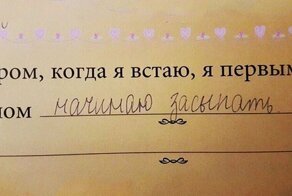 ром, когда я встаю, я первым
ом начинаю засыпать